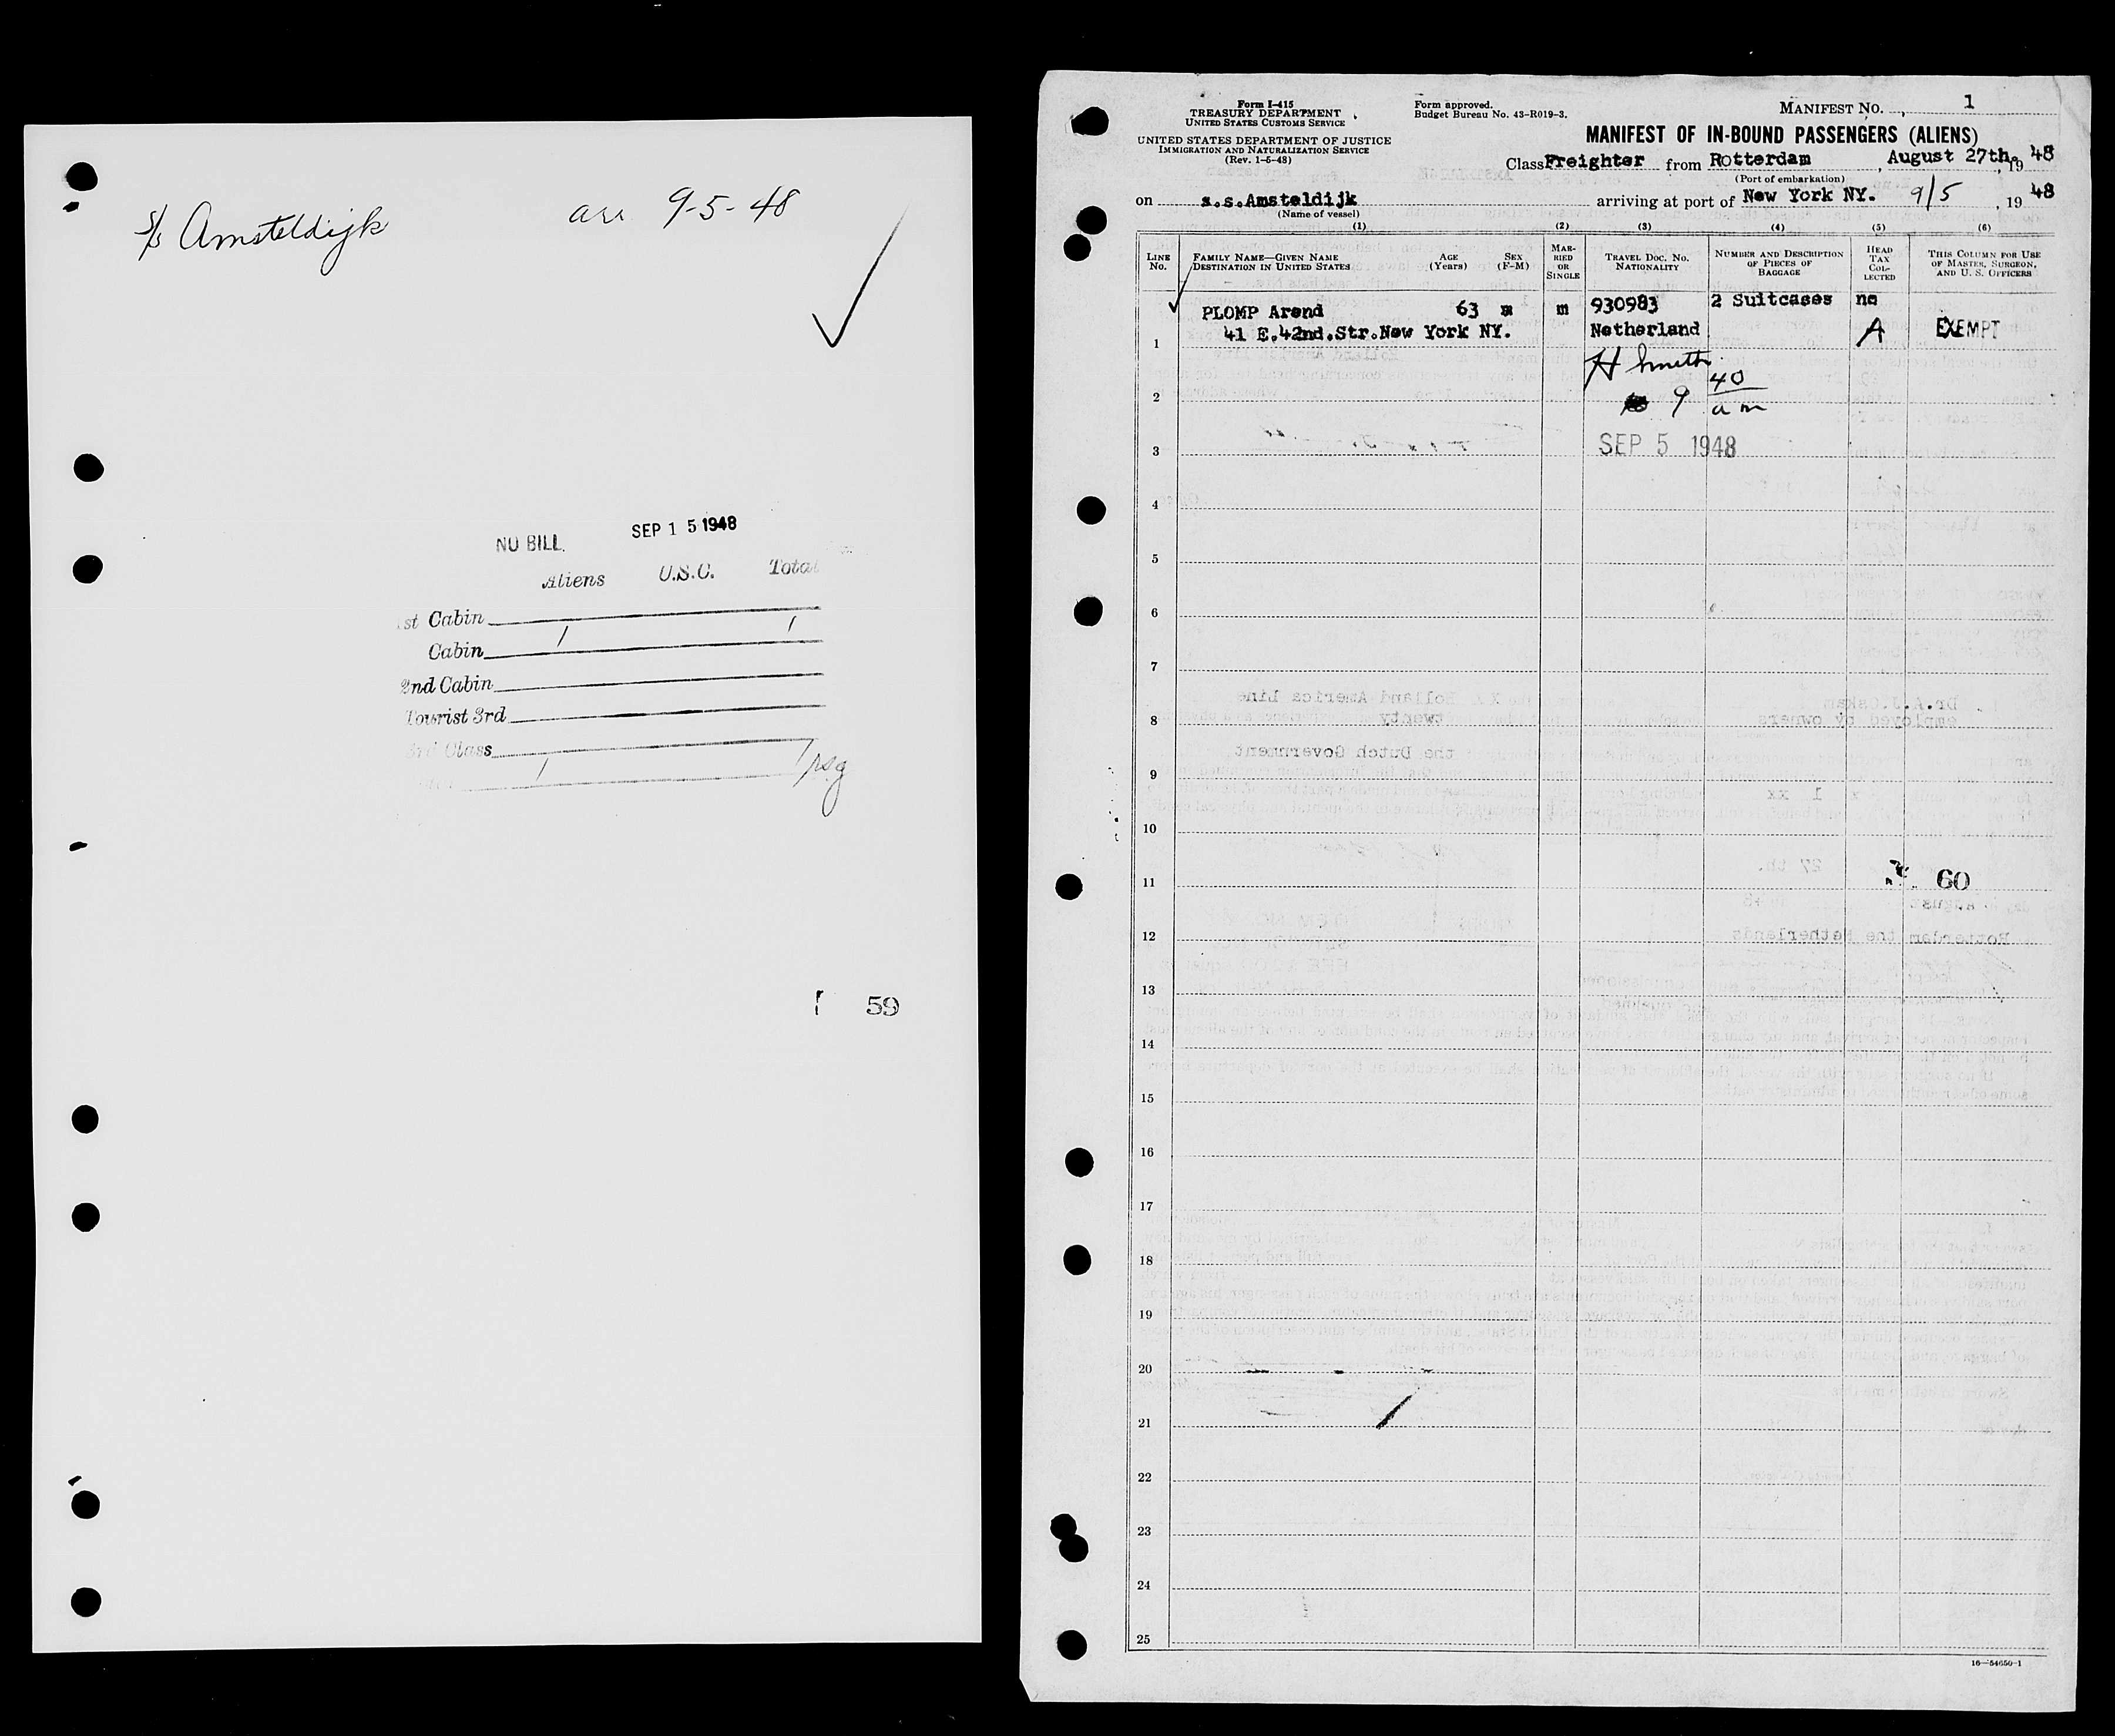 s/s Amsteldijk arr 9-5-48
NO BILL. SEP 15 1948
Aliens U.S.C. Total
st Cabin
Cabin 1 1
2nd Cabin
Tourist 3rd
3rd Class
1 1 psg
59
Form I-415
TREASURY DEPARTMENT
UNITED STATES CUSTOMS SERVICE
UNITED STATES DEPARTMENT OF JUSTICE
IMMIGRATION AND NATURALIZATION SERVICE
(Rev. 1-6-48)
Form approved.
Budget Bureau No. 43-R019-3.
MANIFEST NO. 1
MANIFEST OF IN-BOUND PASSENGERS (ALIENS)
Class Freighter from Rotterdam, August 27th, 19 48
(Port of embarkation)
on s.s.Amsteldijk arriving at port of New York NY. 9/5, 19 48
(Name of vessel)
(1) (2) (3) (4) (5) (6)
LINE NO.
FAMILY NAME—GIVEN NAME
DESTINATION IN UNITED STATES
AGE (Years)
SEX (F-M)
MARRIED OR SINGLE
TRAVEL DOC. NO.
NATIONALITY
NUMBER AND DESCRIPTION OF PIECES OF BAGGAGE
HEAD TAX COLLECTED
THIS COLUMN FOR USE OF MASTER, SURGEON, AND U. S. OFFICERS
PLOMP Arend 63 m m 930983 2 Suitcases no
41 E.42nd.Str.New York NY. Netherland A EXEMPT
1
H Smith
2 9 40 am
3 SEP 5 1948
4
5
6
7
8
9
10
11 60
12
13
14
15
16
17
18
19
20
21
22
23
24
25
16—54650-1